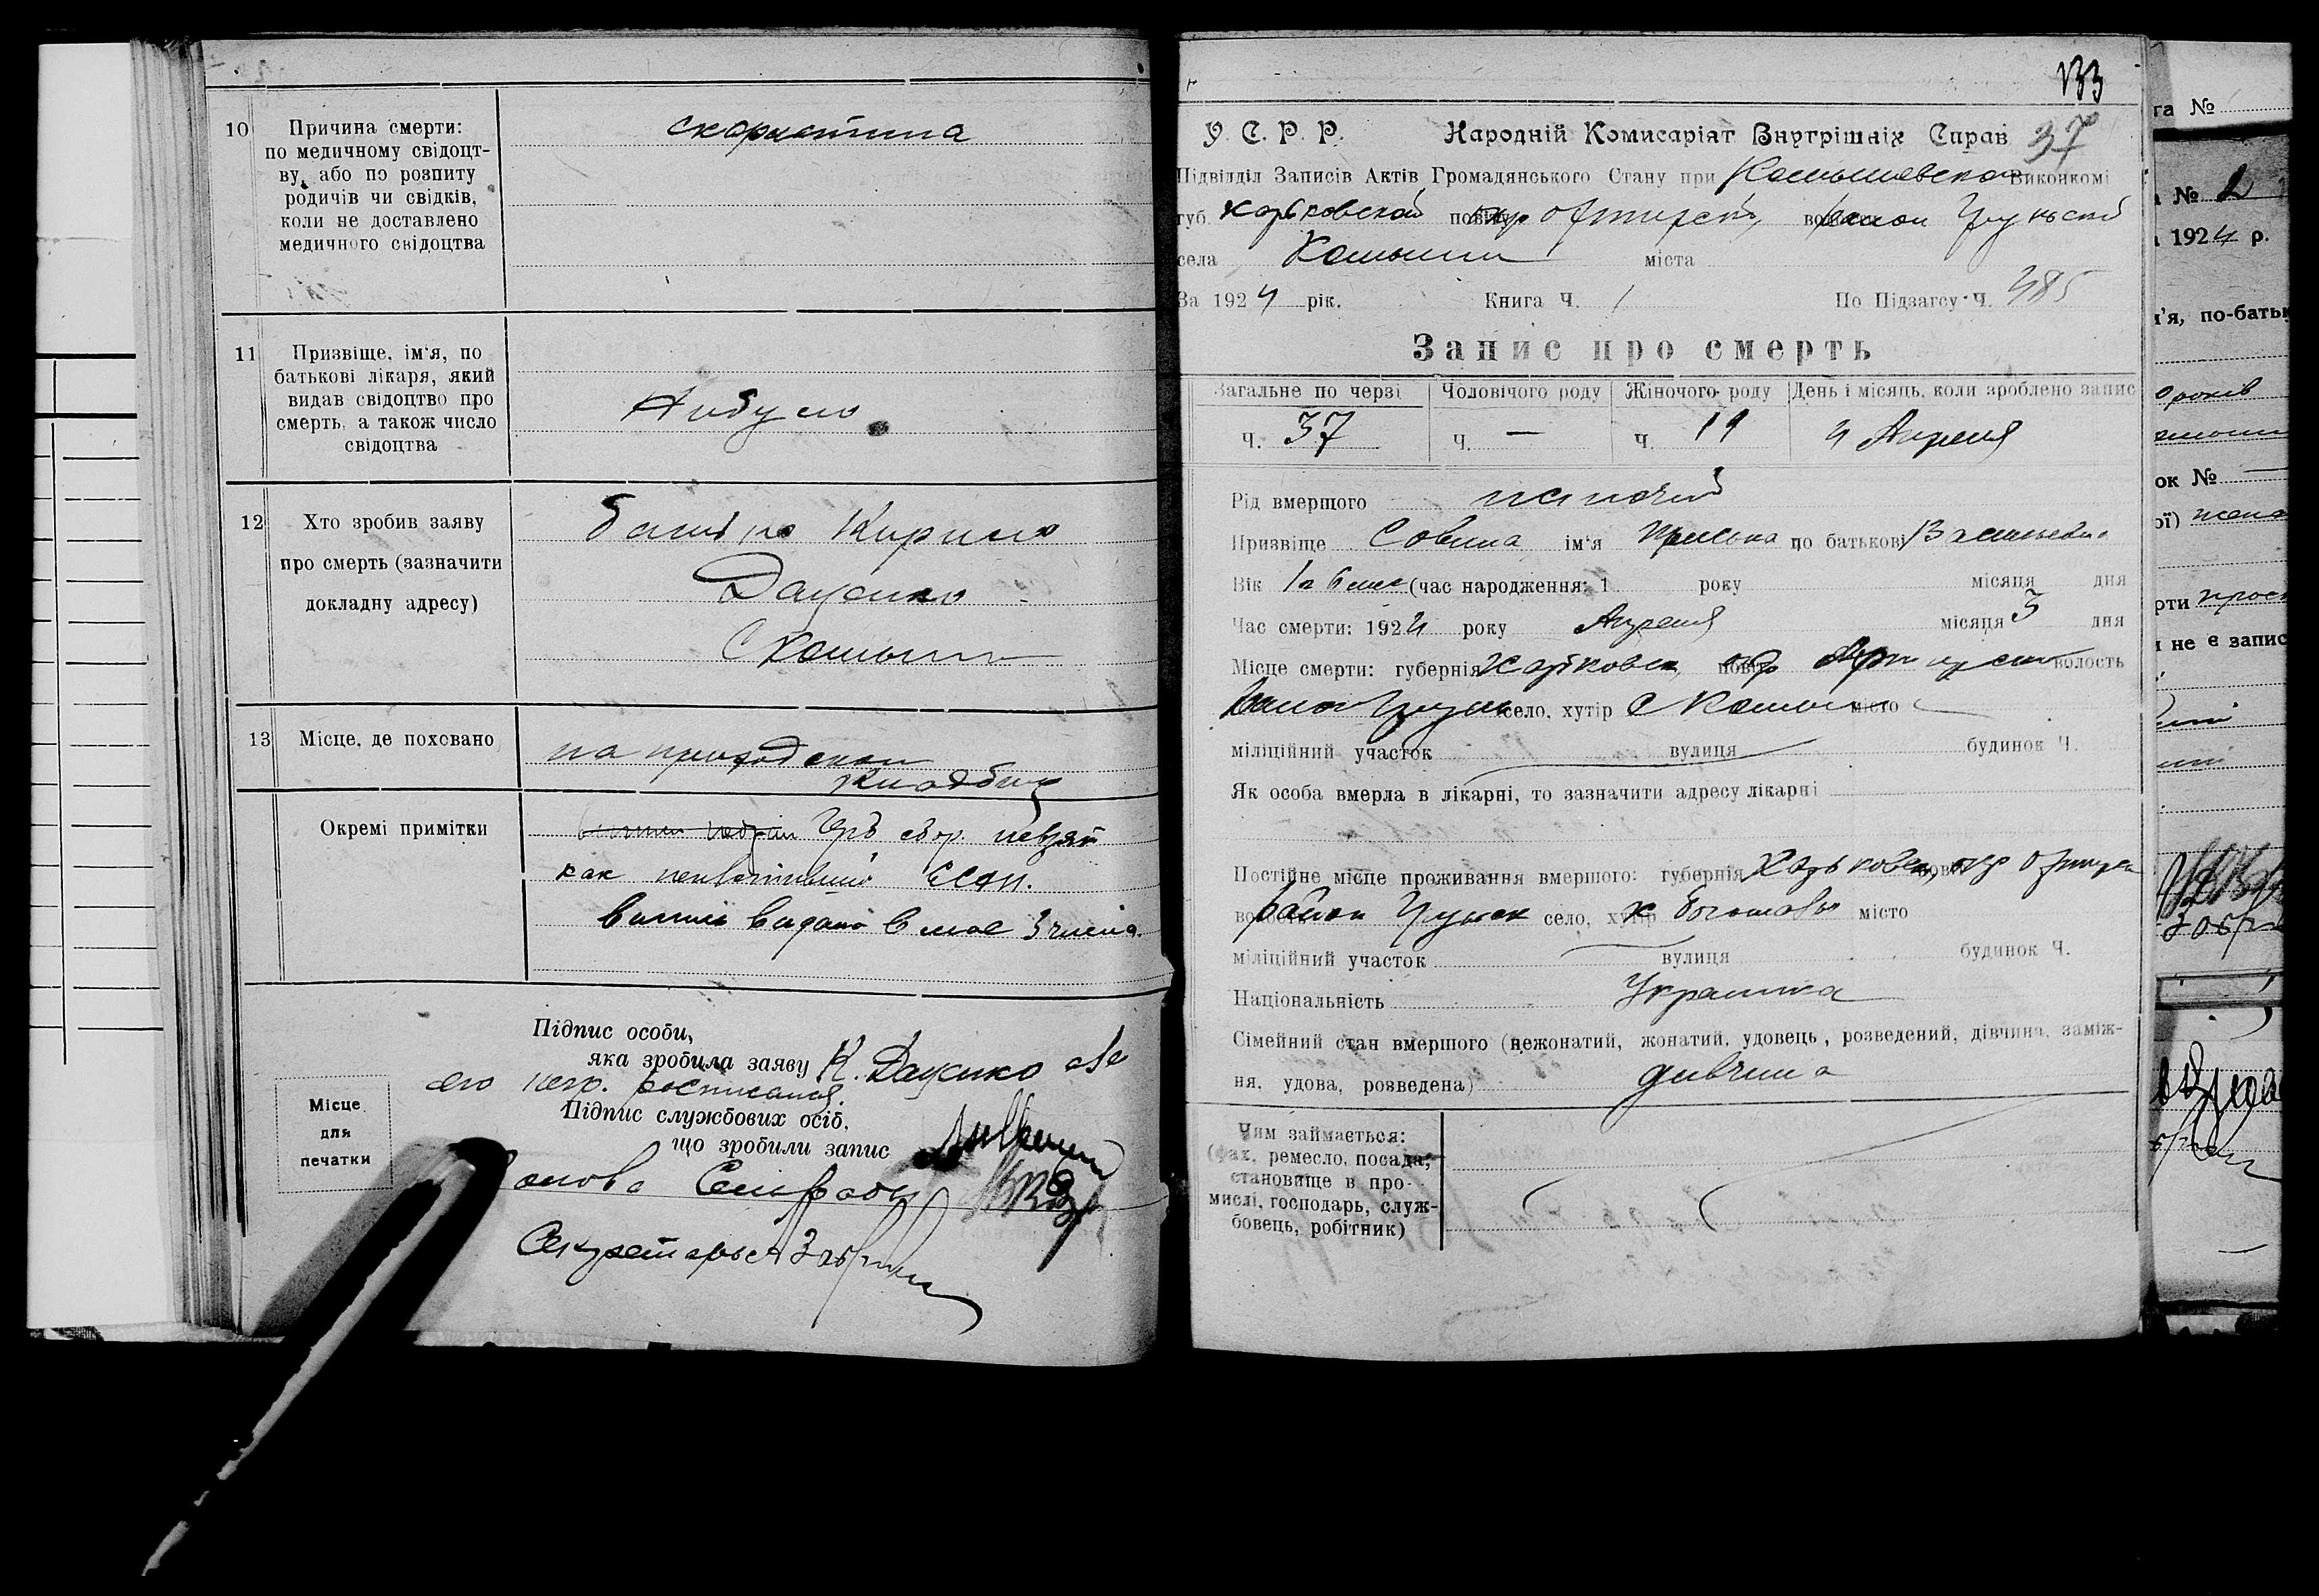 10
Причина смерти:
по медичному свідоцт-
ву, або по розпиту
родичів чи свідків,
коли не доставлено
медичного свідоцтва
скарлатина
11
Призвіще, ім'я, по
батькові лікаря, який
видав свідоцтво про
смерть, а також число
свідоцтва
Небуло
12
Хто зробив заяву
про смерть (зазначити
докладну адресу)
батько Кирило
Даценко
С Комыши
13
Місце, де поховано
на приходском
кладбищ
Окремі примітки
Грб. сбор. невзят
как
выпись видана в мае 3 числа.
Підпис особи,
яка зробила заяву К. Даценко
его негр. росписался.
Підпис службових осіб,
що зробили запис
Місце
для
печатки
Секретарь
133
У. С. Р. Р. Народній Комисаріат Внутрішніх Справ 37
Підвідділ Записів Актів Громадянського Стану при Комышевском Виконкомі
губ. Харьковской повіту окр Ахтирск, район Грунский
села Комыши міста
За 1924 рік. Книга Ч. 1 По Підзагсу Ч. 485
Запис про смерть
Загальне по черзі Чоловічого роду Жіночого роду День і місяць, коли зроблено запис
Ч. 37 Ч. — Ч. 19 4 Апреля
Рід вмершого жіночий
Призвіще Совина ім'я Приська по батькові Васильевна
Вік 1 г 6 мес (час народження: 1 року місяця дня
Час смерти: 1924 року Апреля місяця 3 дня
Місце смерти: губернія Харьковск, повіт окр Ахтирский волость
район Грунь село, хутір С Комыши місто
міліційний участок вулиця будинок Ч.
Як особа вмерла в лікарні, то зазначити адресу лікарні
Постійне місце проживання вмершого: губернія Харьковск, окр Ахтирск
район Грунск село, хутір х місто
міліційний участок вулиця будинок Ч.
Національність Українка
Сімейний стан вмершого (нежонатий, жонатий, удовець, розведений, дівчина, заміж-
ня, удова, розведена) дивчина
Чим займається:
(фах, ремесло, посада,
становище в про-
мислі, господарь, служ-
бовець, робітник)
га №
№ 2
1924 р.
'я, по-батьк
років
ок №
ої) жена
рти
не є запис